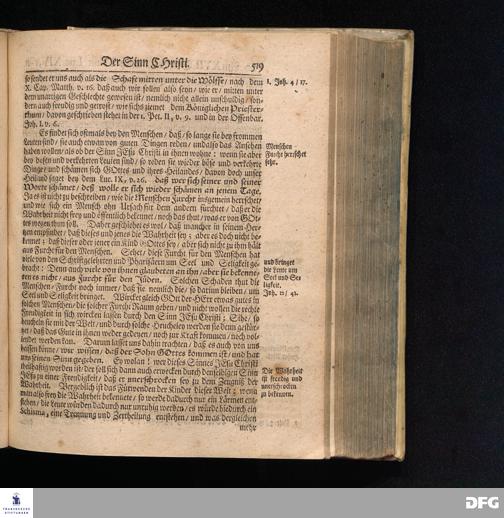 Der Sinn CHristi. 519
so sendet er uns auch als die Schafe mitten unter die Wölffe / nach dem
X. Cap. Matth. v. 16. daß auch wir sollen also seyn / wie er / mitten unter
dem unartigen Geschlechte gewesen ist / nemlich nicht allein unschuldig / son-
dern auch freudig und getrost / wie sichs ziemet dem Königlichen Priester-
thum / davon geschrieben stehet in der 1. Pet. II, v. 9. und in der Offenbar.
Joh. I. v. 6.
I. Joh. 4 / 17.
Es findet sich oftmals bey den Menschen / daß / so lange sie bey frommen
Leuten sind / sie auch etwan von guten Dingen reden / und also das Ansehen
haben wollen / als ob der Sinn JEsu Christi in ihnen wohne: wenn sie aber
bey bösen und verkehrten Leuten sind / so reden sie wieder böse und verkehrte
Dinge / und schämen sich GOttes und ihres Heilandes / davon doch unser
Heiland saget bey dem Luc. IX, v. 26. daß wer sich seiner und seiner
Worte schämet / deß wolle er sich wieder schämen an jenem Tage.
Ja es ist nicht zu beschreiben / wie die Menschen Furcht insgemein herrschet /
und wie sich ein Mensch ohn Ursach für dem andern fürchtet / daß er die
Wahrheit nicht frey und öffentlich bekennet / noch das thut / was er von GOt-
tes wegen thun soll. Daher geschiehet es wol / daß mancher in seinem Her-
tzen empfindet / daß dieses und jenes die Wahrheit sey; aber es doch nicht be-
kennet; daß dieser oder jener ein Kind GOttes sey / aber sich nicht zu ihm hält
aus Furcht für den Menschen. Sehet / diese Furcht für den Menschen hat
viele von den Schrifftgelehrten und Pharisäern um Seel und Seligkeit ge-
bracht: Denn auch viele von ihnen glaubeten an ihn / aber sie bekenne-
ten es nicht / aus Furcht für den Jüden. Solchen Schaden thut die
Menschen-Furcht noch immer / daß sie nemlich die / so darinn bleiben / um
Seel und Seligkeit bringet. Würcket gleich GOtt der HErr etwas gutes in
solchen Menschen / die solcher Furcht Raum geben / und nicht wollen die rechte
Freudigkeit in sich wircken lassen durch den Sinn JEsu Christi; Sihe / so
heucheln sie mit der Welt / und durch solche Heucheley werden sie denn gestür-
tzet / daß das Gute in ihnen wieder gedenen / noch zur Krafft kommen / noch vol-
lendet werden kan. Darum lasset uns dahin trachten / daß es auch von uns
heissen könne / wir wissen / daß der Sohn GOttes kommen ist / und hat
uns seinen Sinn gegeben. Ey wolan! wer dieses Sinnes JEsu Christi
theilhaftig worden ist / der laß sich dann auch erwecken durch denselbigen Sinn
JEsu zu einer Freudigkeit / daß er unerschrocken sey zu dem Zeugniß der
Wahrheit. Vergeblich ist das Fürwenden der Kinder dieser Welt; wenn
man also frey die Wahrheit bekennete / so werde dadurch nur ein Lärmen ent-
stehen / die Leute würden dadurch nur unruhig werden / es würde hiedurch ein
Schisma, eine Trennung und Zertheilung entstehen / und was dergleichen
mehr
Menschen-
Furcht herrschet
sehr.
und bringet
die Leute um
Seel und Se-
ligkeit.
Joh. 12 / 42.
Die Wahrheit
ist freudig und
unerschrocken
zu bekennen.
FRANCKESCHE
STIFTUNGEN
DFG